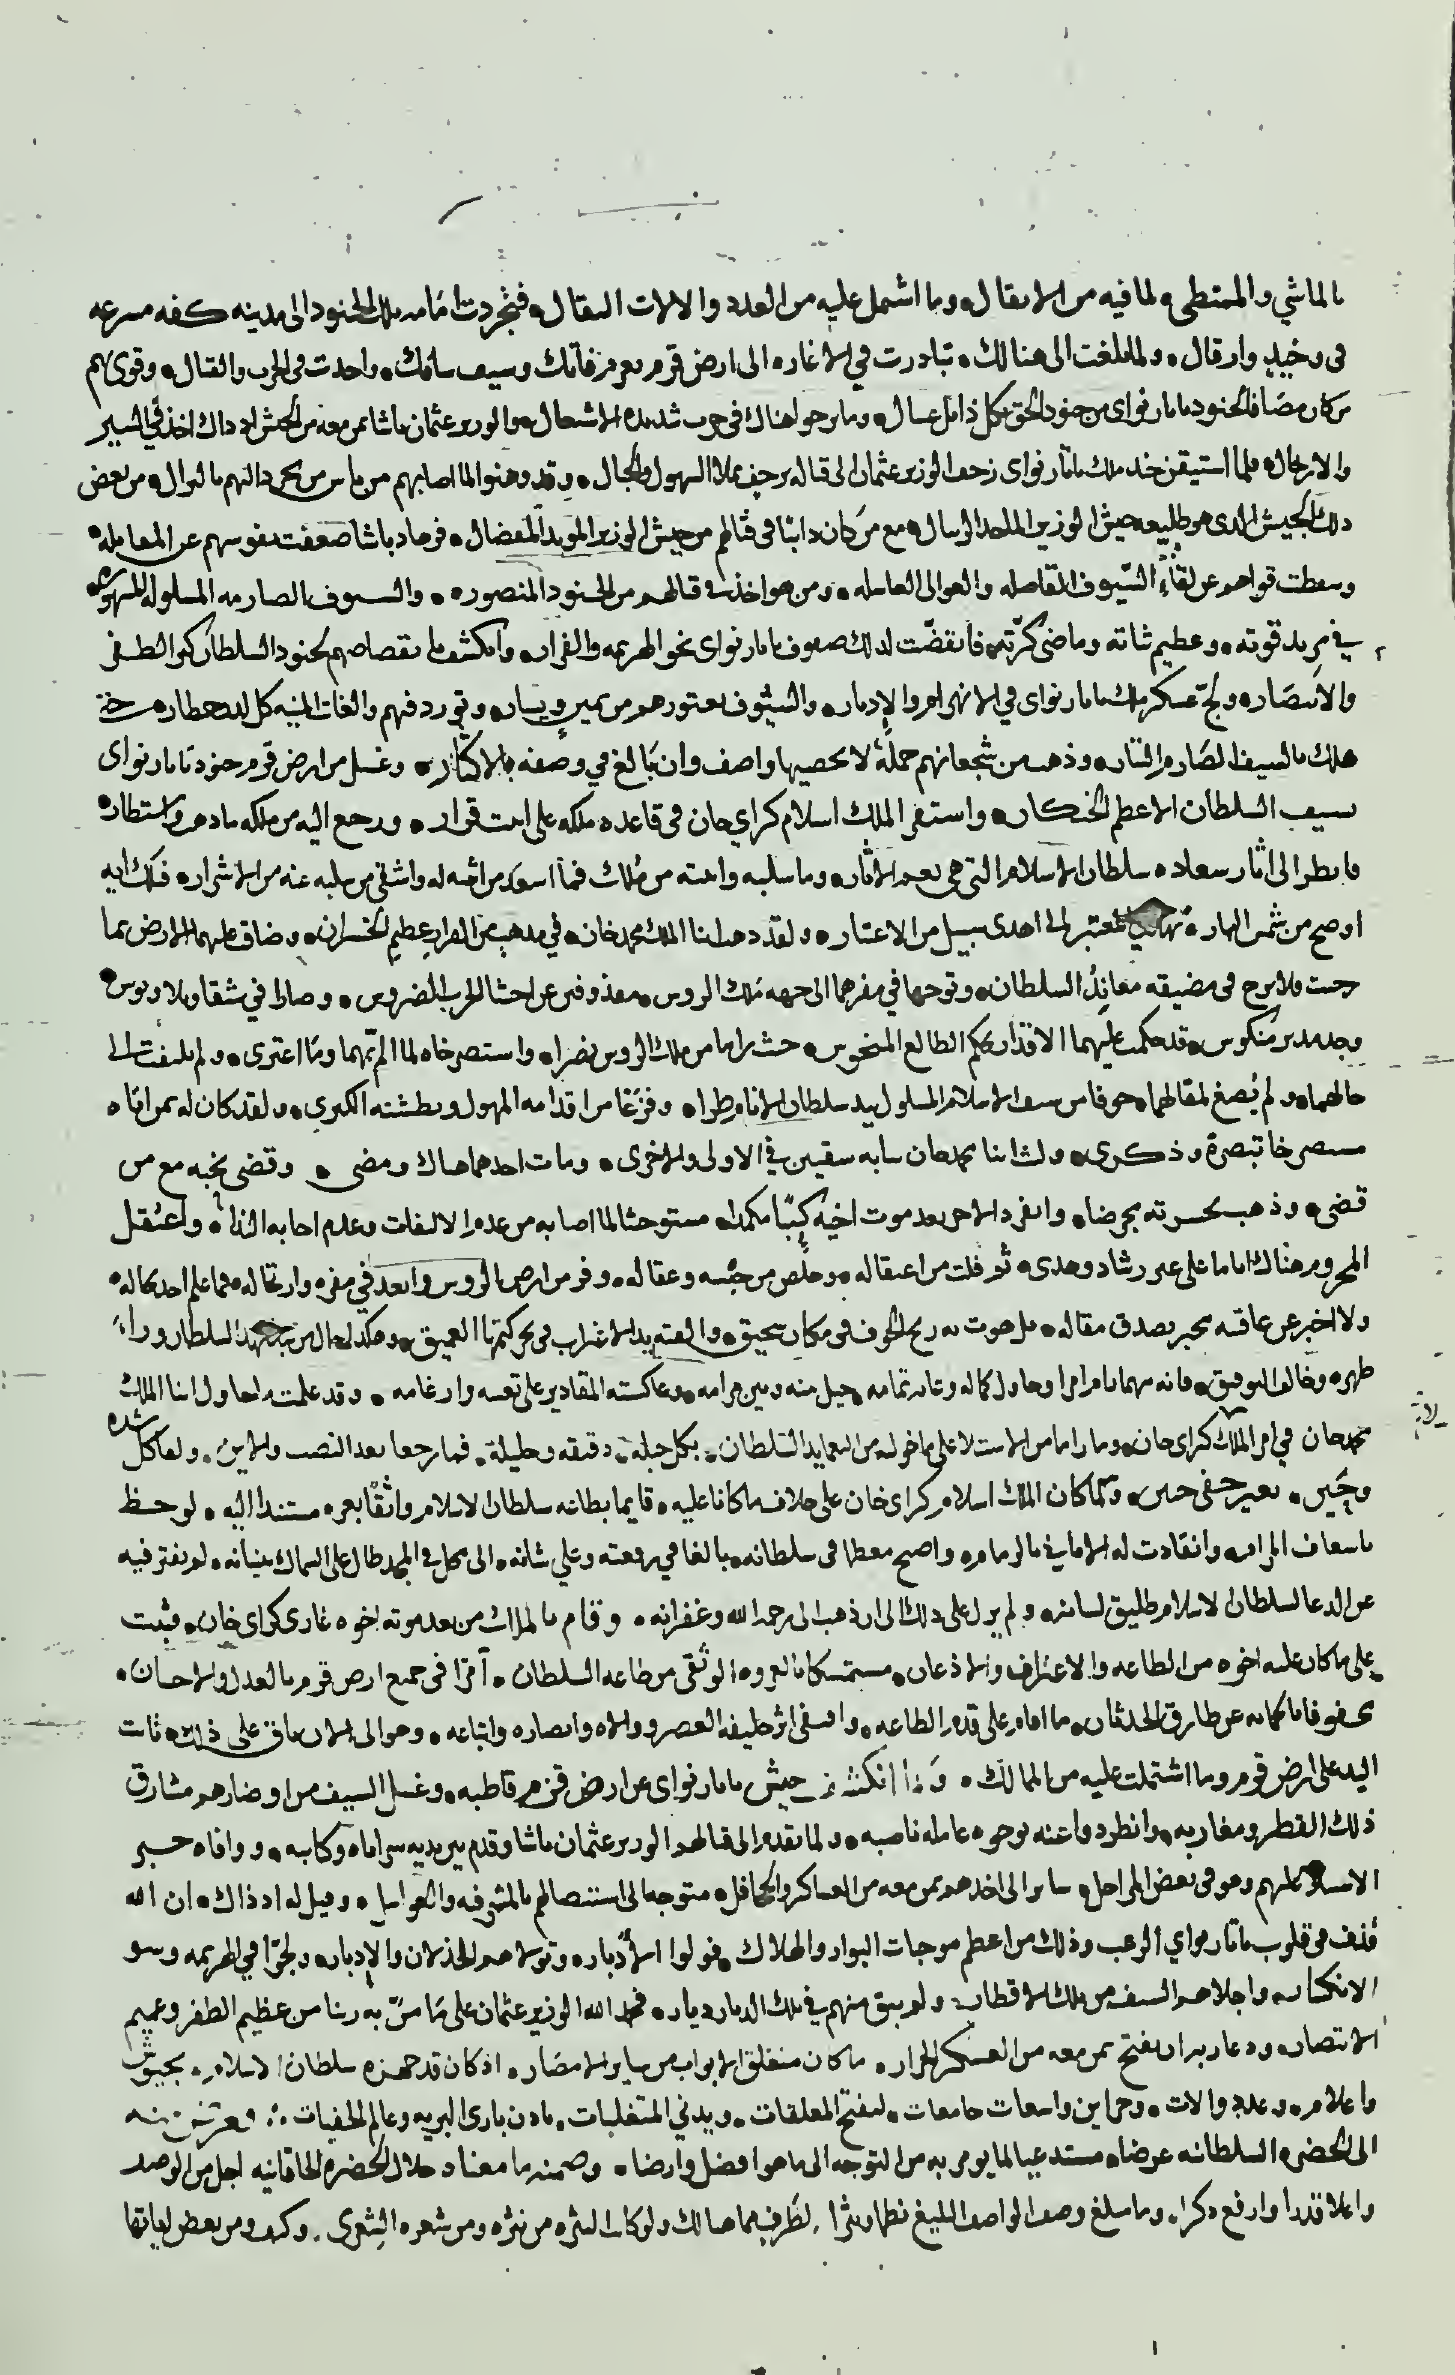 بالماشي والممتطي لما فيه من الاثقال وما اشتمل عليه من العدد والالات الثقال فتجردت امامه تلك الجنود الى مدينه كفه مسرعه
في وخيد وارقال ولما بلغت الى هنالك تبادرت في الاغاره الى ارض قرم بعزم فاتك وسيف سافك واخذت في الحرب والقتال وقوي بهم
من كان مصافا لجنود ماتار نواي من جنود الحق بكل ذابل عسال وما برحوا هناك في حرب شديده الاشتعال والوزير عثمان باشا بمن معه من الجيش اذ ذاك اخذ في السير
والارتحال فلما استيقن جند ملك ماتار نواي زحف الوزير عثمان الى قتاله برجف يملا السهول والجبال وقد وهنوا لما اصابهم من باس من تجرد اليهم بالنزال من بعض
ذلك الجيش الذي هو طليعه جيش الوزير مع من كان دائبا في قتالهم من جيش الوزير المويد المفضال فرهاد باشا ضعفت نفوسهم عن المعامله
وسقطت قواهم عن لقاء السيوف القاصله والعوالي العامله ومن هو اخذ في قتالهم من الجنود المنصوره والسيوف الصارمه المسلوله المشهوره
في مزيد قوته وعظيم ثباته وماضي كرته فانفضت لذلك صفوف ماتار نواي نحو الهزيمه والفرار وانكشف بانقضاضهم لجنود السلطان كوكب الظفر
والانتصار ولج عسكر ملك ماتار نواي في الانهزام والادبار والسيوف تعتورهم من يمين ويسار وتوردهم والغات المنيه كل حتى
هلك بالسيف الصارم البتار وذهب من شجعانهم جمله لا يحصيها واصف وان بالغ في وصفه بالاكثار وغسل من ارض قرم جنود تاتار نواي
بسيف السلطان الاعظم الخنكار واستقر الملك اسلام كراي خان في قاعده ملكه على اثبت قرار ورجع اليه من ملكه ما ذهب واستطار
فانظر الى اثار سعاده سلطان الاسلام التي هي نعم الاثار وما سلبه واعتبه من ملك فما اسعد من احبه له واشقى من سلبه عنه من الاشرار فتلك ايه
اوضح من شمس النهار المعتبر الى اهدى سبيل من الاعتبار ولقد ذهب ابنا الملك محمد خان في مذهب من الفرار عظيم الخسران وضاق عليهما الارض بما
رحبت فلا برح في مضيقه معاند السلطان وتوجها في مفرهما الى جهه ملك الروس مقذوفين عن احشا الحرب الضروس وصارا في شقا وبلا وبوس
وجد مدبر منكوس قد حكمت عليهما الاقدار بحكم الطالع المنحوس حيث راما من ملك الروس نصرا واستصرخاه لما الم بهما وما اعترى ولم يلتفت الى
حالهما ولم يصغ لمقالهما خوفا من سيف الاسلام المسلول بيد سلطان الانام طرا وفزعا من اقدامه المهول وبطشته الكبرى ولقد كان له بمن اتاه
مستصرخا تبصرة وذكرى ولبث ابنا محمد خان ببابه شقيين في الاولى والاخرى ومات احدهما هناك ومضى وقضى نحبه مع من
قضى وذهب بحسرته وانفرد الاخر بعد موت اخيه كئيبا مكمدا مستوحشا لما اصابه من عدم الالتفات وعدم اجابه الندا واعتقل
المحروم هناك اياما على غير رشاد وهدى ثم فلت من اعتقاله وخلص من حبسه وعقاله وفر من ارض الروس وابعد في مفره وارتحاله فما علم احد بحاله
ولا اخبر عن عاقبه مخبر بصدق مقاله بل هوت به ريح الخوف في مكان سحيق والقته يد الاغتراب في العميق وهكذا حال من نبذ عهد السلطان وراء
ظهره وخالف التوفيق فانه مهما رام امرا وحاول كماله وغايه تمامه حيل بينه وبين مرامه وعاكسته المقادير على تعسه وارغامه وقد علمت ما حاول ابنا الملك
محمد خان في امر الملك كراي خان وما راما من الاستلاء على ما خوله من النعما يد السلطان بكل حيله دقيقه وجليله فما رجعا بعد النصب والاين ولقا كل شده
وحين بغير خفي حنين وكما كان الملك اسلام كراي خان على خلاف ما كانا عليه قايما بطاعه سلطان الاسلام واثقا بعزه مستندا اليه لوحظ
باسعاف المرام وانقادت له الاماني بالزمام واصبح معظما في سلطانه بالغا في رفعته وعلي شانه الى محل في المجد طال على السماك بنيانه لم يفتر فيه
عن الدعا لسلطان الاسلام طليق لسانه ولم يزل على ذلك الى ان ذهب الى رحمه الله وغفرانه وقام بالملك من بعد موته اخوه غازي كراي خان فثبت
على ما كان عليه اخوه من الطاعه والاعتراف والاذعان مستمسكا بالعروه الوثقى من طاعه السلطان آمرا في جميع ارض قرم بالعدل والاحسان
محفوفا مكانه عن طارق الحدثان ما اقام على قدم الطاعه واقتفى اثر خليفه العصر ووالاه وانصاره واتباعه وهو الى الان باق على ذلك ثابت
اليد على ارض قرم وما اشتملت عليه من الممالك ولما انكشف جيش ماتار نواي عن ارض قرم قاطبه وغسل السيف من اوضارهم مشارق
ذلك القطر ومغاربه وانطردوا عنه بوجوه عامله ناصبه ولما تقدم الى قتالهم الوزير عثمان باشا وقدم بين يديه سراياه وكتايبه ووافاه خبر
كلهم وهو في بعض المراحل سايرا الى اخذهم بمن معه من العساكر والجحافل متوجها الى استئصالهم بالمشرفيه والعواسل وقيل له اذ ذاك ان الله
قذف في قلوب ماتار نواي الرعب وذلك من اعظم موجبات البوار والهلاك فولوا الادبار وتولاهم الخذلان والادبار ولجوا في الهزيمه وسو
الانكسار واجلاهم السيف من تلك الاقطار ولم يبق منهم في تلك الديار ديار فحمد الله الوزير عثمان على ما من به ربنا من عظيم الظفر وعميم
الانتصار ودعا ربه ان يفتح بمن معه من العسكر الجرار ما كان منغلق الابواب من ساير الامصار اذ كان قد جهزه سلطان الاسلام بجيوش
واعلام وعدد والات وخزاين واسعات جامعات ليفتح المعلقات ويدني المتقلبات باذن باري البريه وعالم الخفيات فعرض منه
الى الحضره السلطانيه عرضا مستدعيا لما يومر به من التوجه الى ما هو افضل وارضا وضمنه ما معناه جلال الحضره الخاقانيه اجل من الوصف
واعلا قدرا وارفع ذكرا وما مبلغ وصف الواصف البليغ نظما ونثرا لطرف مما هنالك ولو كانت النثره من نثره ومن شعره الشعرى وكيف ومن بعض